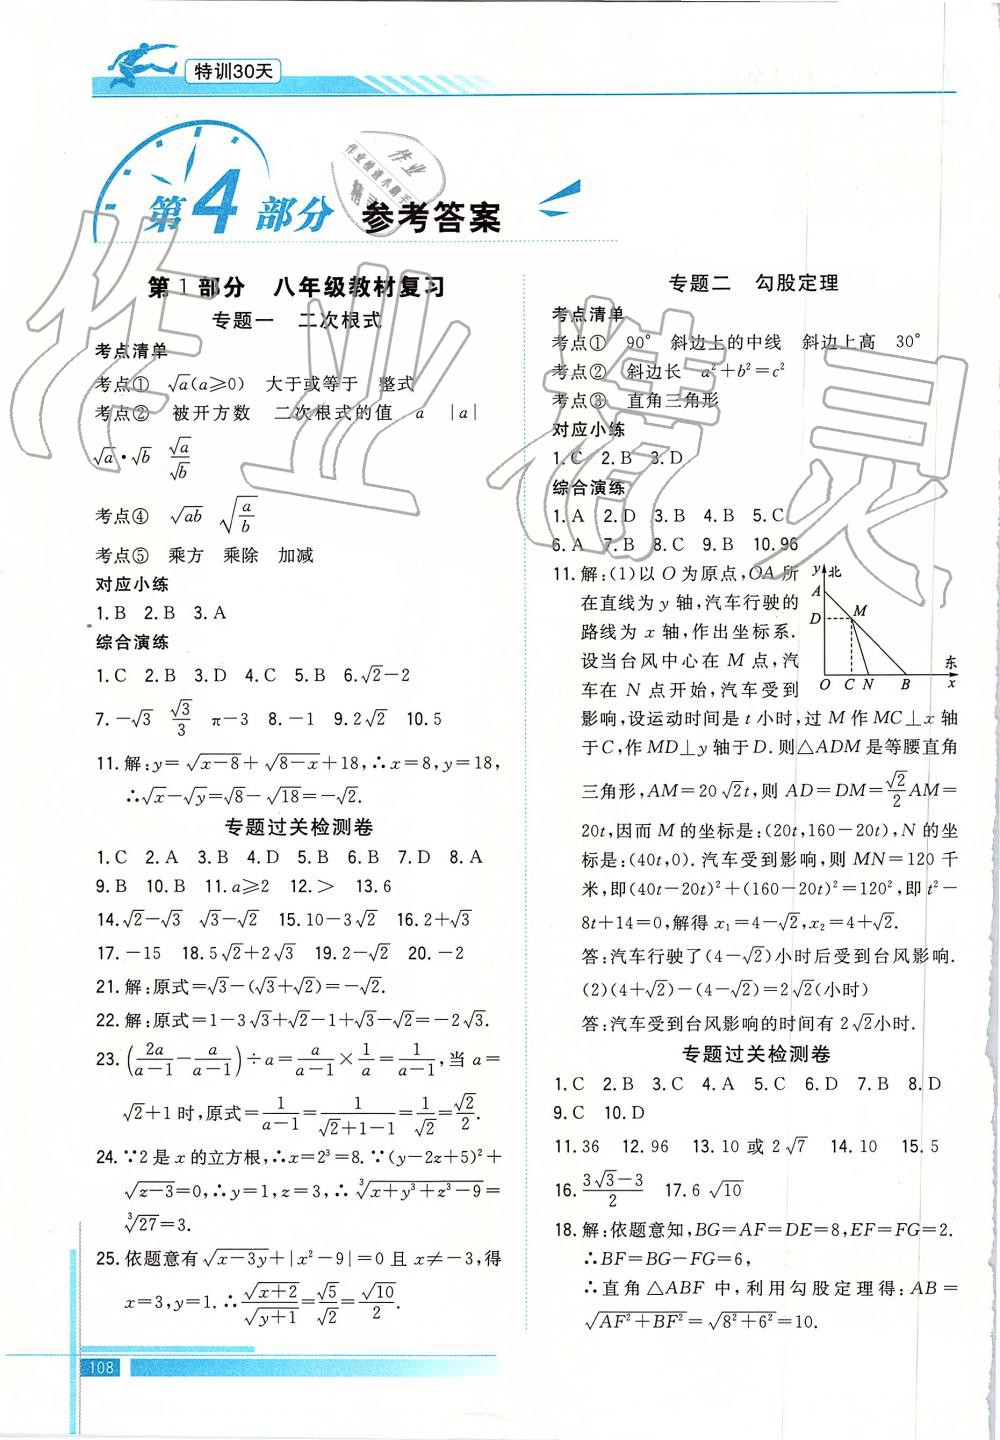 特训30天
第4部分 参考答案
第1部分 八年级教材复习
专题一 二次根式
考点清单
考点① √a(a≥0) 大于或等于 整式
考点② 被开方数 二次根式的值 a |a|
√a·√b √a/√b
考点④ √ab √(a/b)
考点⑤ 乘方 乘除 加减
对应小练
1.B 2.B 3.A
综合演练
1.C 2.B 3.D 4.C 5.B 6.√2-2
7.-√3 √3/3 π-3 8.-1 9.2√2 10.5
11.解:y=√(x-8)+√(8-x)+18,∴x=8,y=18,
∴√x-√y=√8-√18=-√2.
专题过关检测卷
1.C 2.A 3.B 4.D 5.B 6.B 7.D 8.A
9.B 10.B 11.a≥2 12.> 13.6
14.√2-√3 √3-√2 15.10-3√2 16.2+√3
17.-15 18.5√2+2√3 19.2-√2 20.-2
21.解:原式=√3-(√3+√2)=-√2.
22.解:原式=1-3√3+√2-1+√3-√2=-2√3.
23.(2a/(a-1)-a/(a-1))÷a=a/(a-1)×1/a=1/(a-1),当a=
√2+1时,原式=1/(a-1)=1/(√2+1-1)=1/√2=√2/2.
24.∵2是x的立方根,∴x=2³=8.∵(y-2z+5)²+
√(z-3)=0,∴y=1,z=3,∴∛(x+y³+z³-9)=
∛27=3.
25.依题意有√(x-3y)+|x²-9|=0且x≠-3,得
x=3,y=1.∴√(x+2)/√(y+1)=√5/√2=√10/2.
108
专题二 勾股定理
考点清单
考点① 90° 斜边上的中线 斜边上高 30°
考点② 斜边长 a²+b²=c²
考点③ 直角三角形
对应小练
1.C 2.B 3.D
综合演练
1.A 2.D 3.B 4.B 5.C
6.A 7.B 8.C 9.B 10.96
11.解:(1)以O为原点,OA所
在直线为y轴,汽车行驶的
路线为x轴,作出坐标系.
设当台风中心在M点,汽
车在N点开始,汽车受到
y 北
A
D
M
O C N B
东
x
影响,设运动时间是t小时,过M作MC⊥x轴
于C,作MD⊥y轴于D.则△ADM是等腰直角
三角形,AM=20√2t,则AD=DM=√2/2AM=
20t,因而M的坐标是:(20t,160-20t),N的坐
标是:(40t,0).汽车受到影响,则MN=120千
米,即(40t-20t)²+(160-20t)²=120²,即t²-
8t+14=0,解得x₁=4-√2,x₂=4+√2.
答:汽车行驶了(4-√2)小时后受到台风影响.
(2)(4+√2)-(4-√2)=2√2(小时)
答:汽车受到台风影响的时间有2√2小时.
专题过关检测卷
1.C 2.B 3.C 4.A 5.C 6.D 7.B 8.D
9.C 10.D
11.36 12.96 13.10或2√7 14.10 15.5
16.(3√3-3)/2 17.6√10
18.解:依题意知,BG=AF=DE=8,EF=FG=2.
∴BF=BG-FG=6,
∴直角△ABF中,利用勾股定理得:AB=
√(AF²+BF²)=√(8²+6²)=10.
作业精灵